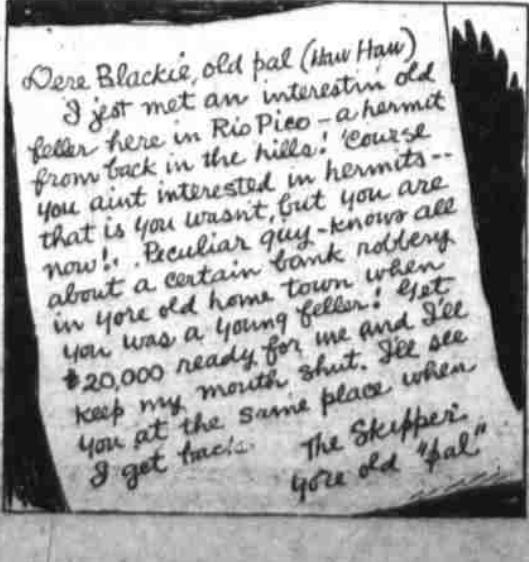 Dere Blackie, old pal (Haw Haw)
I jest met an interestin old
feller here in Rio Pico - a hermit
from back in the hills! 'Course
you aint interested in hermits--
that is you wasn't, but you are
now!.. Peculiar guy - knows all
about a certain bank robbery
in yore old home town when
you was a young feller! Get
$20,000 ready for me and I'll
keep my mouth shut. I'll see
you at the same place when
I get back.
The Skipper.
yore old "pal"